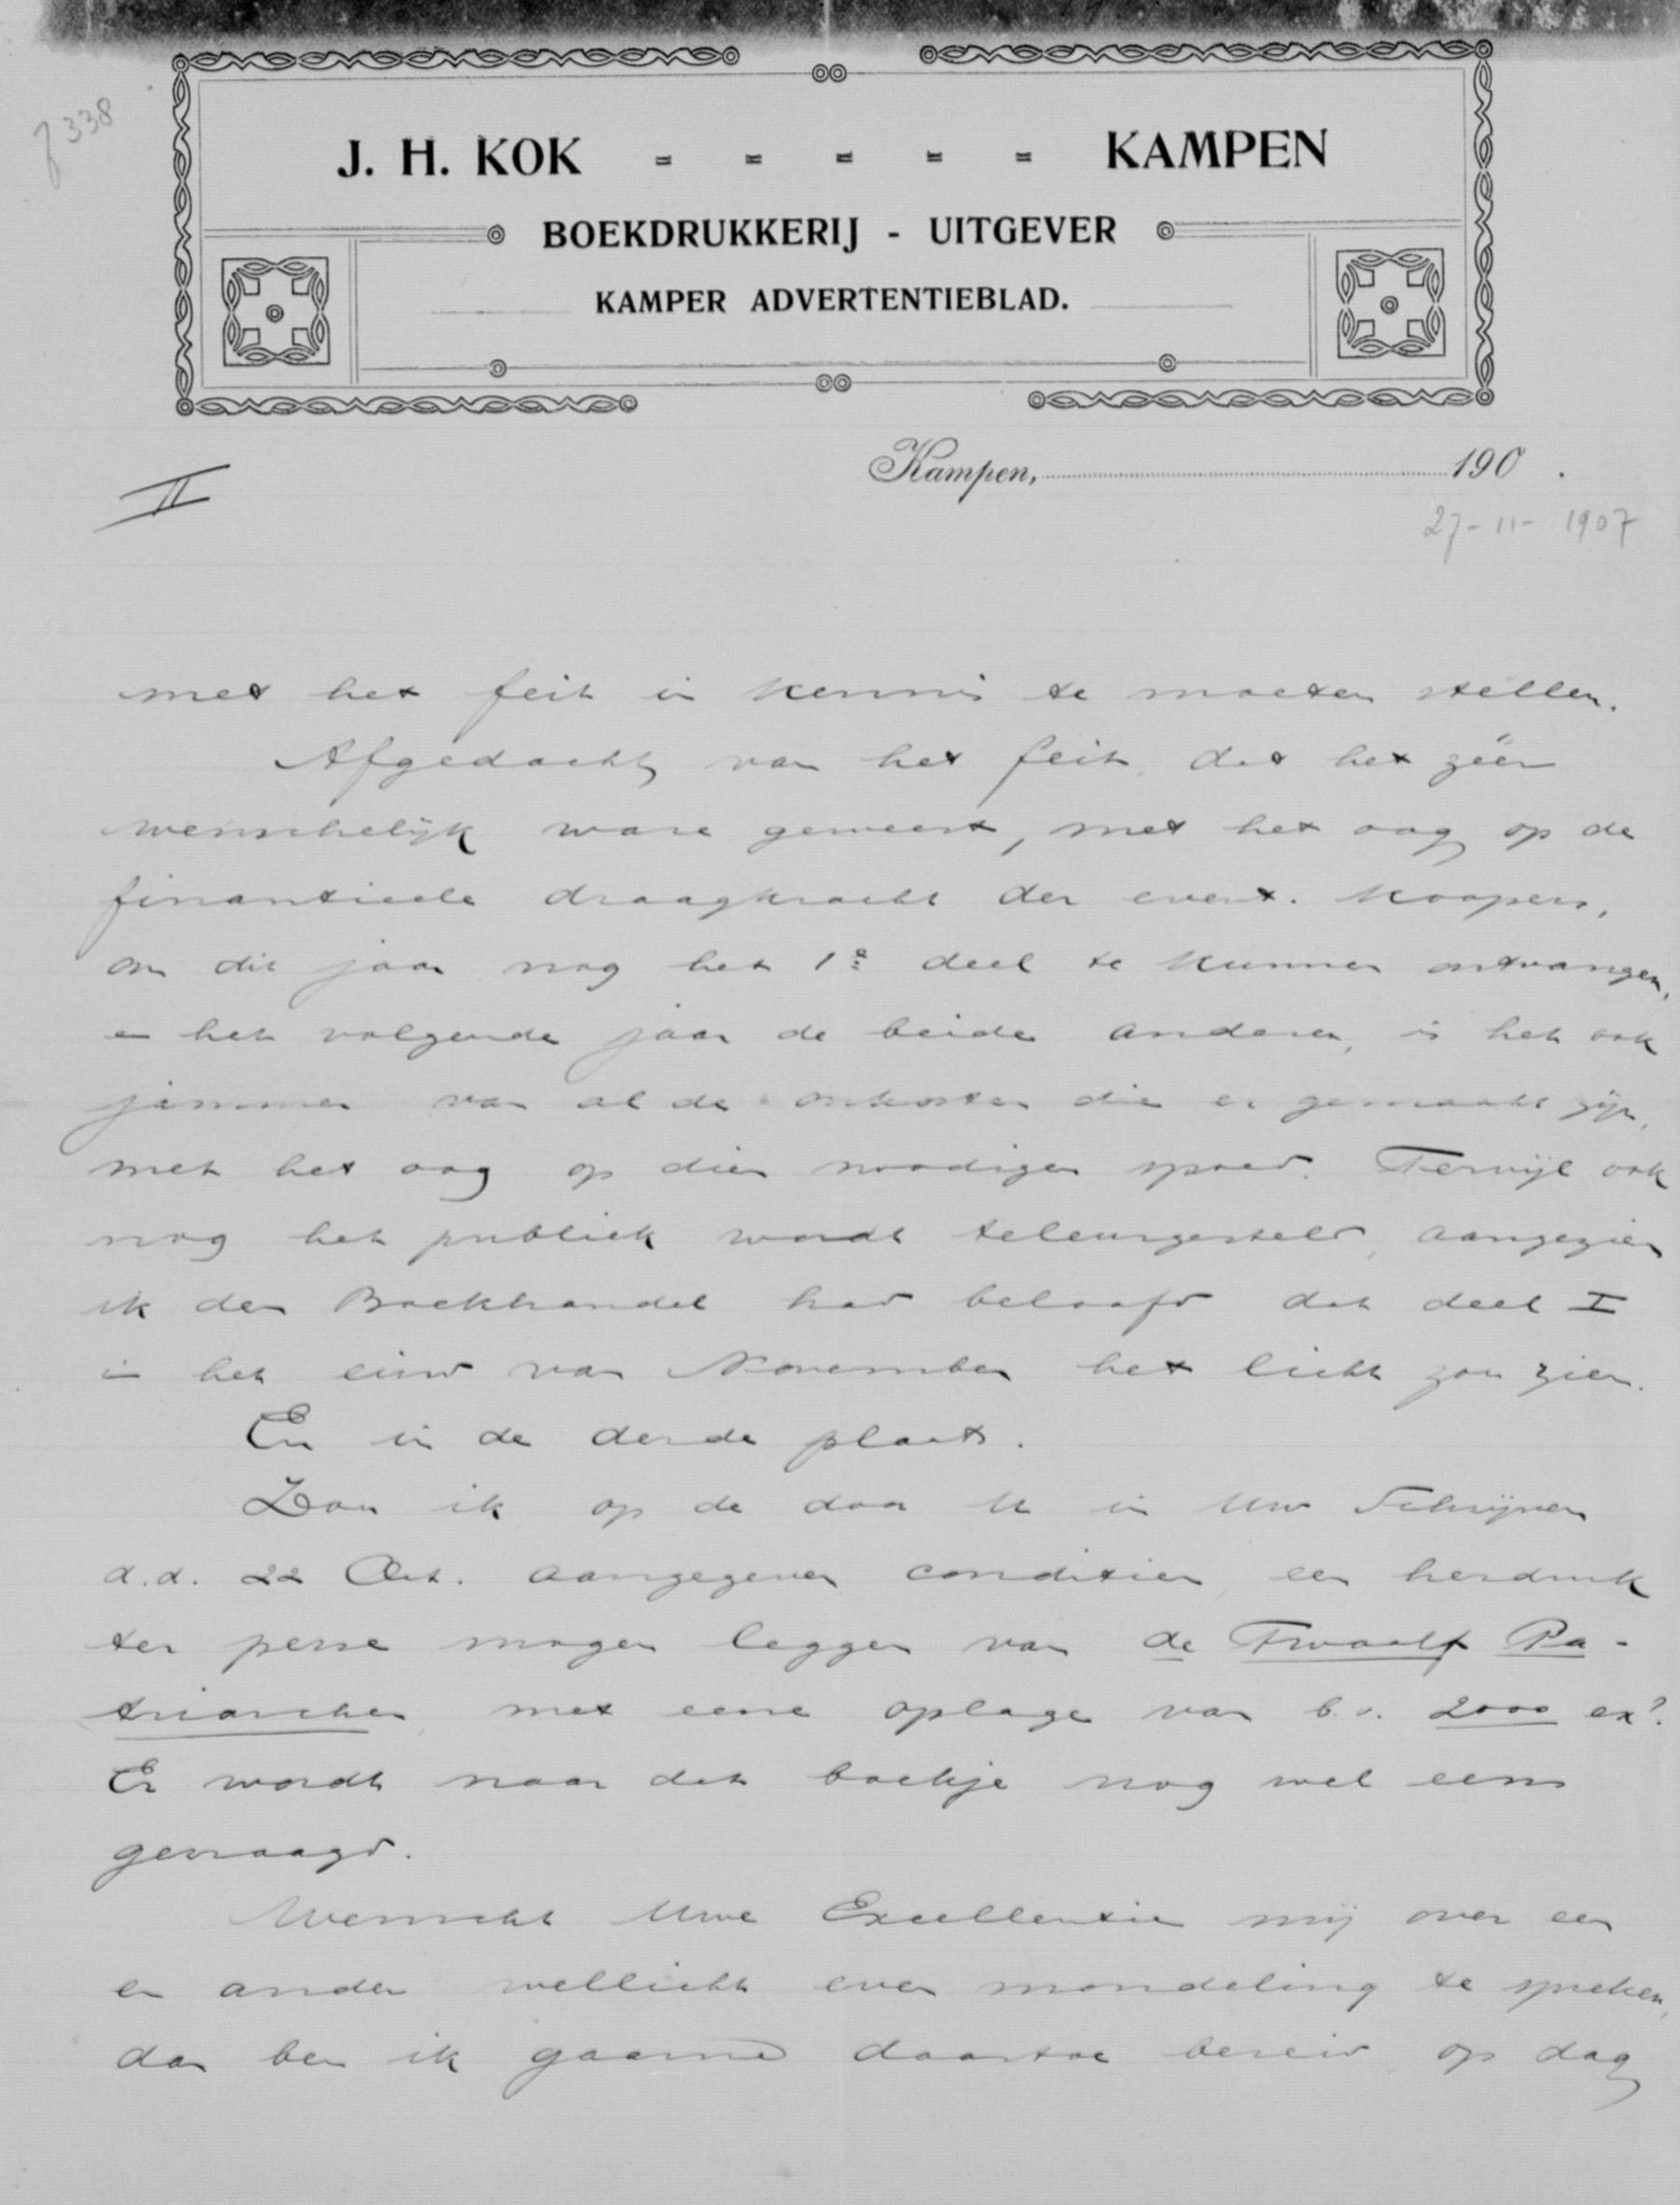 f 338
J. H. KOK - - - - - KAMPEN
BOEKDRUKKERIJ - UITGEVER
KAMPER ADVERTENTIEBLAD.
Kampen, 190 .
27-11-1907
II
met het feit in kennis te moeten stellen.
Afgedacht van het feit, dat het zéér
wenschelijk ware geweest, met het oog op de
finantieele draagkracht der event. koopers,
om dit jaar nog het 1e deel te kunnen ontvangen,
en het volgende jaar de beide anderen, is het ook
jammer van al de onkosten die er gemaakt zijn,
met het oog op dien noodigen spoed. Terwijl ook
nog het publiek wordt teleurgesteld, aangezien
ik den Boekhandel had beloofd dat deel I
in het eind van November het licht zou zien.
En in de derde plaats.
Zou ik op de door U in Uw Schrijven
d.d. 22 Oct. aangegeven conditien, een herdruk
ter perse mogen leggen van de Twaalf Pa-
triarchen, met eene oplage van b.v. 2000 ex?.
Er wordt naar dat boekje nog wel eens
gevraagd.
Wenscht Uwe Excellentie mij over een
en ander wellicht even mondeling te spreken,
dan ben ik gaarne daartoe bereid, op dag